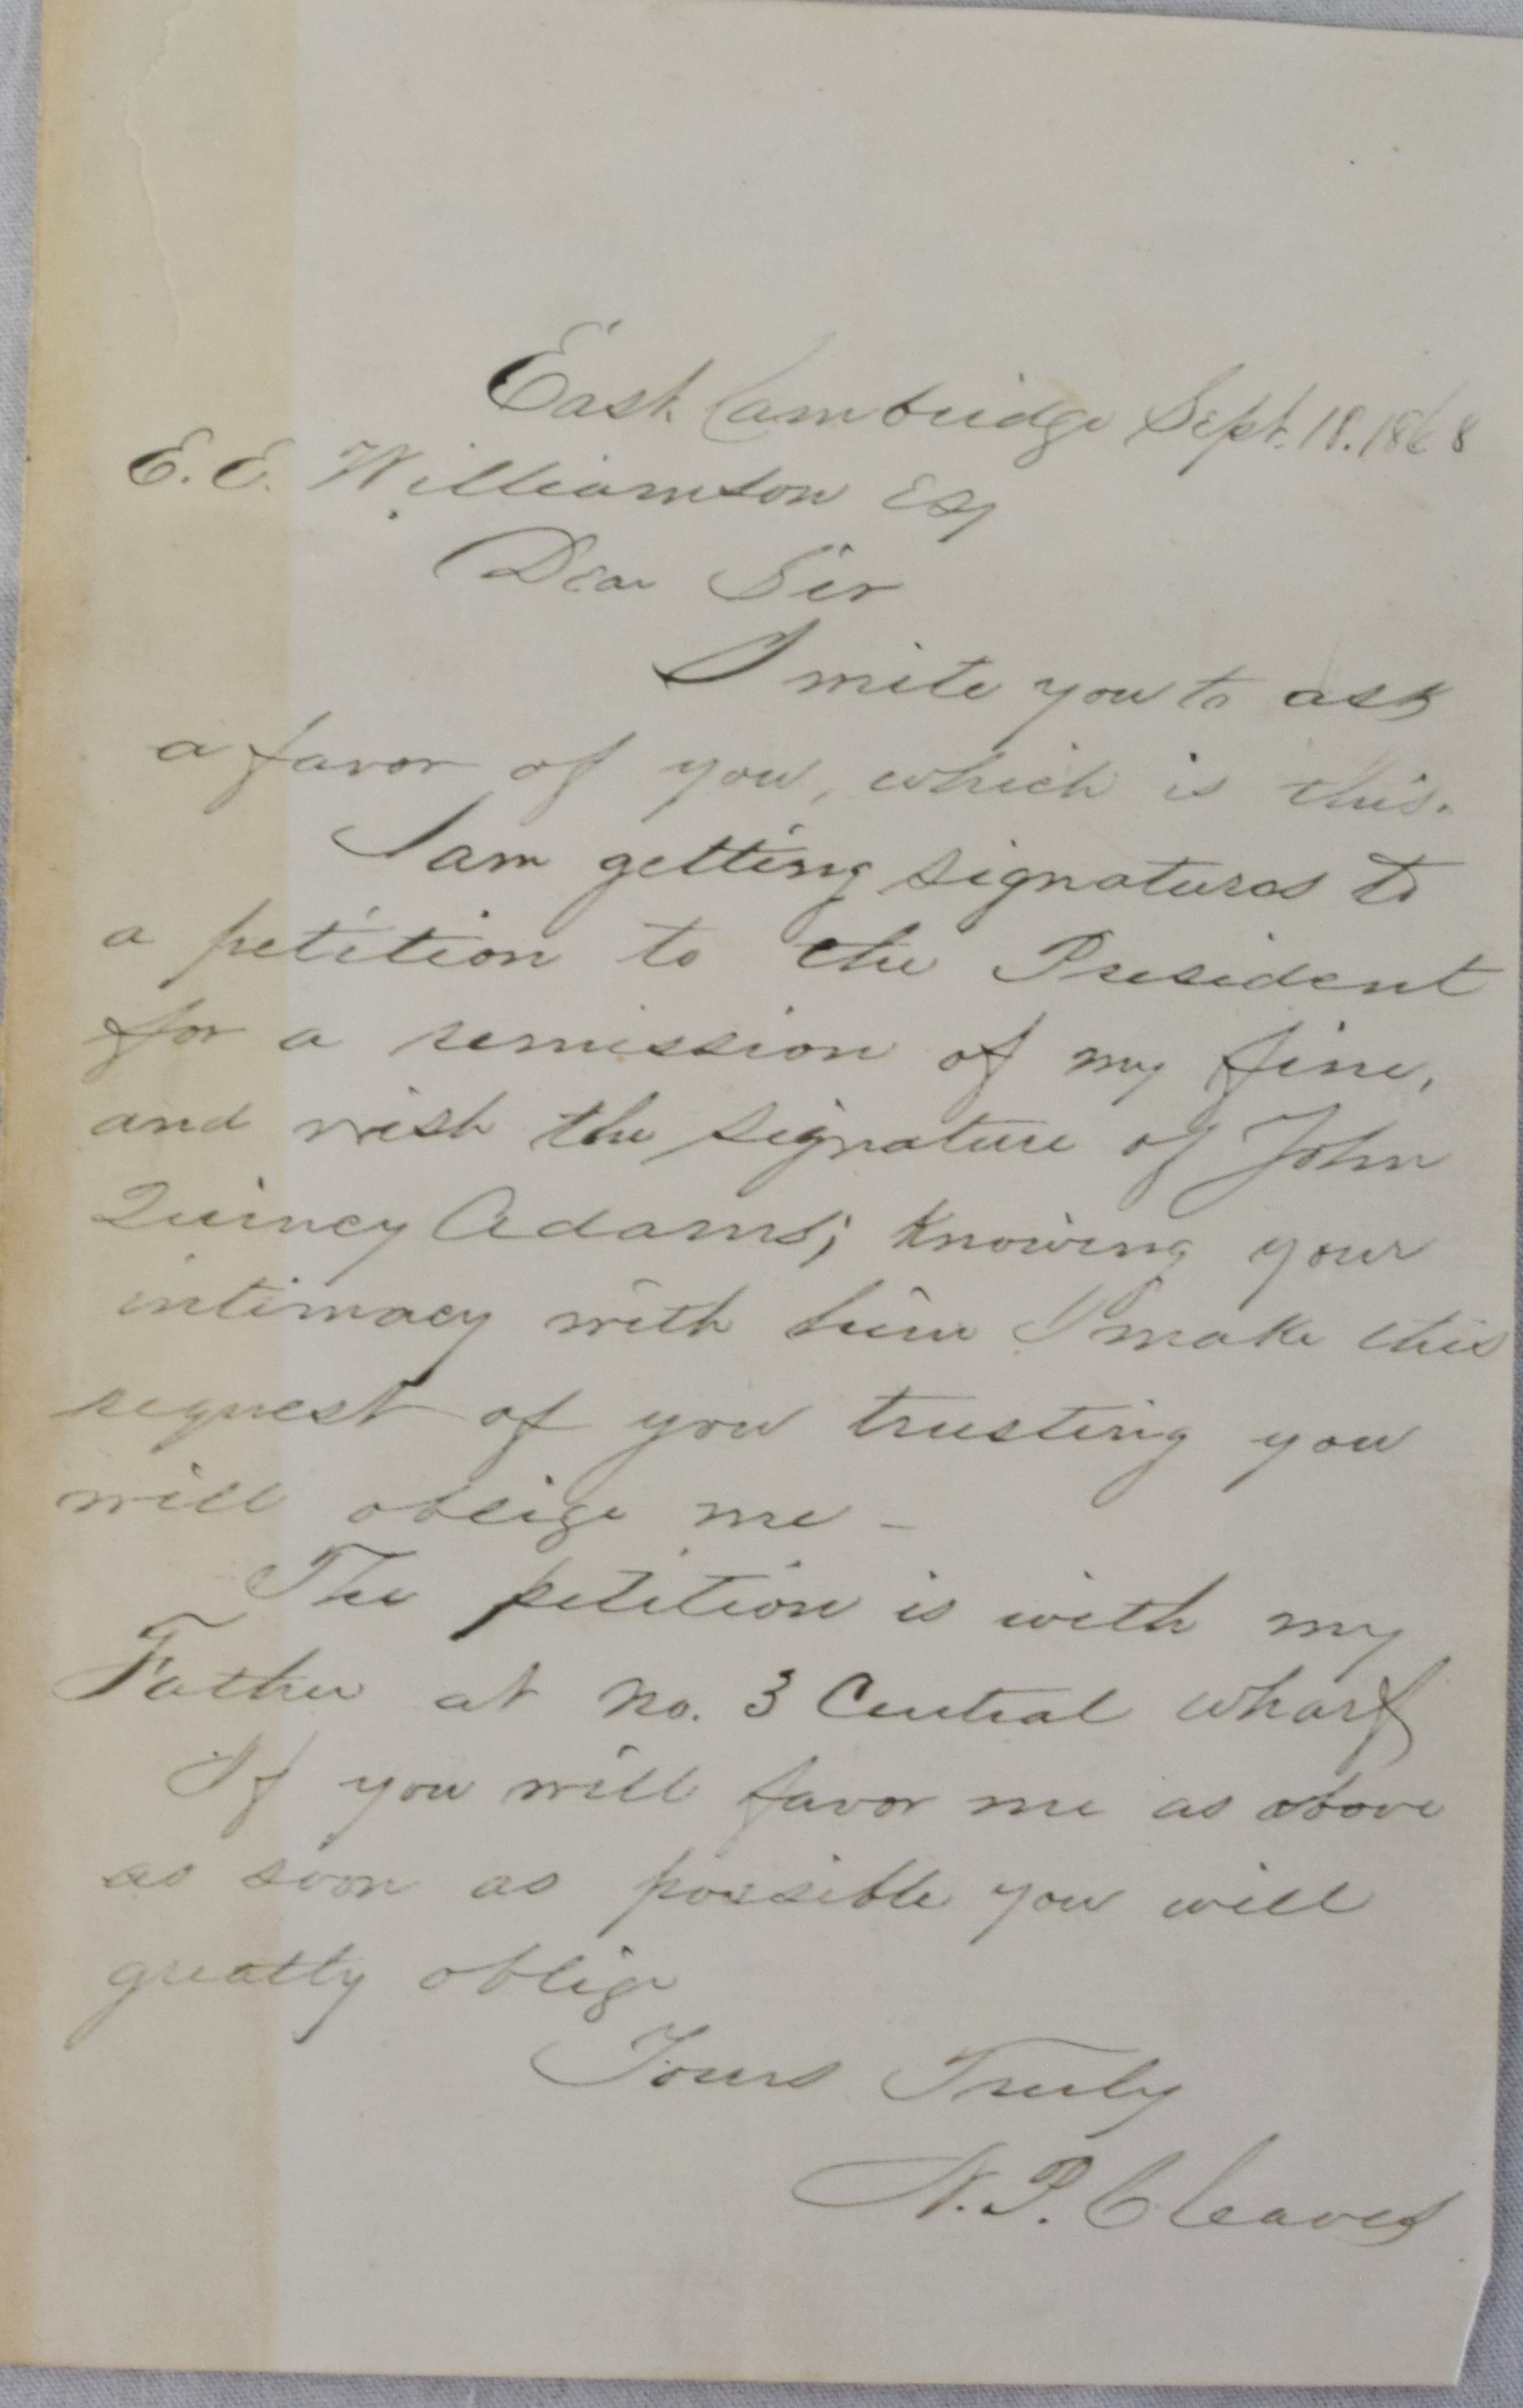 East Cambridge Sept. 18. 1868
E. E. Williamson Esq
Dear Sir
I write you to ask
a favor of you, which is this.
I am getting signatures to
a petition to the President
for a remission of my fine,
and wish the signature of John
Quincy Adams; Knowing your
intimacy with him I make this
request of you trusting you
will oblige me -
The petition is with my
Father at No. 3 Central Wharf
If you will favor me as above
as soon as possible you will
greatly oblige
Yours Truly
N. P. Cleaves